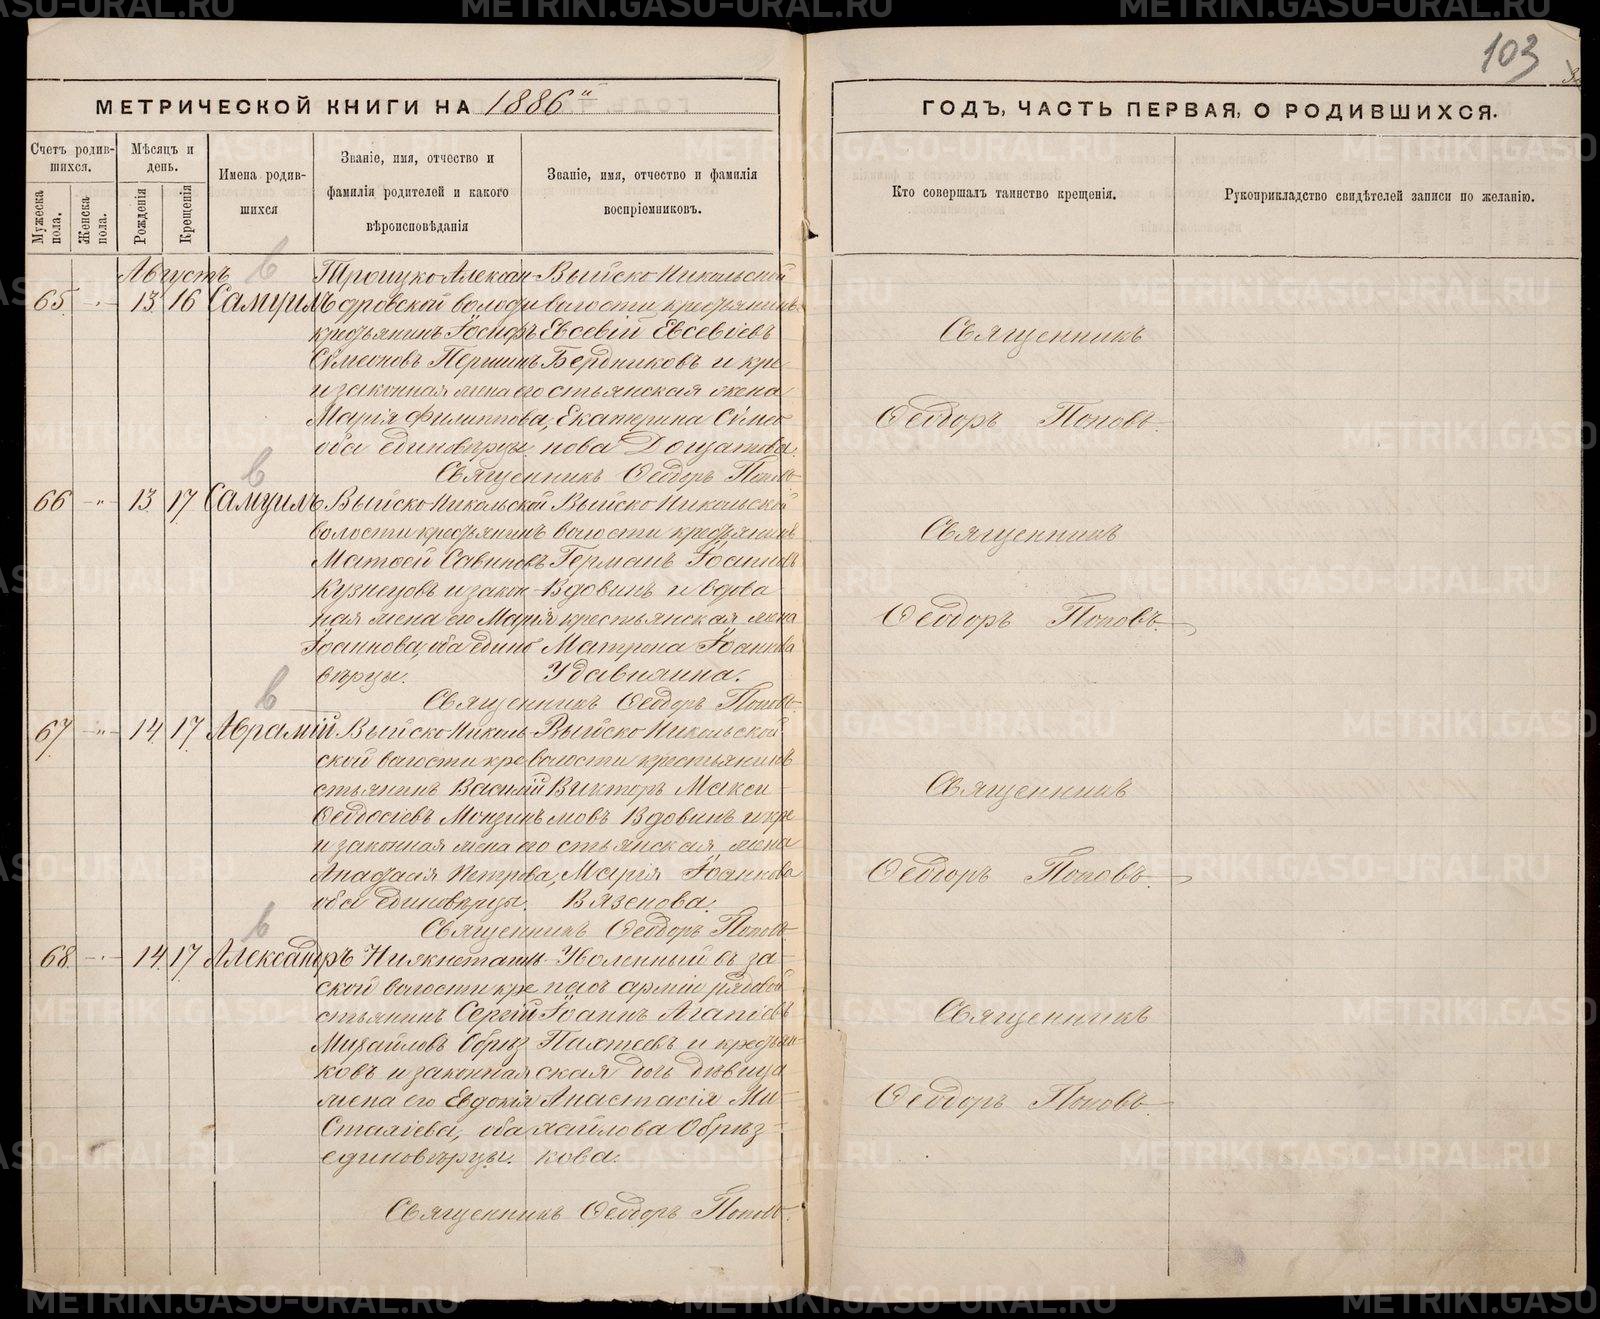 103
МЕТРИЧЕСКОЙ КНИГИ НА 1886й
ГОДЪ, ЧАСТЬ ПЕРВАЯ, О РОДИВШИХСЯ.
Счетъ родив-
шихся.
Мужеска пола.
Женска пола.
Мѣсяцъ и
день.
Рожденія
Крещенія
Имена родив-
шихся
Званіе, имя, отчество и
фамилія родителей и какого
вѣроисповѣданія
Званіе, имя, отчество и фамилія
воспріемниковъ.
Кто совершалъ таинство крещенія.
Рукоприкладство свидѣтелей записи по желанію.
Августъ
65 13 16 Самуилъ
Троицко Алексан-
дровской волости
крестьянинъ Іосифъ
Сѵмеоновъ Першинъ
и законная жена его
Марія Филиппова,
оба единовѣрцы.
Выйско Никольской
волости крестьянинъ
Евсевій Евсевіевъ
Бердниковъ и кре-
стьянская жена
Екатерина Сѵмео
нова Дощатова.
Священникъ Ѳеодоръ Поповъ.
Священникъ
Ѳеодоръ Поповъ.
66 13 17 Самуилъ
Выйско Никольской
волости крестьянинъ
Матѳей Савиновъ
Кузнецовъ и закон-
ная жена его Марія
Іоаннова, оба едино
вѣрцы.
Выйско Никольской
волости крестьянинъ
Германъ Іоанновъ
Вдовинъ и вдова
крестьянская жена
Матрена Іоаннова
Удавихина.
Священникъ Ѳеодоръ Поповъ.
Священникъ
Ѳеодоръ Поповъ.
67 14 17 Аврамій
Выйско Николь-
ской волости кре
стьянинъ Василій
Ѳеодосіевъ Монзинъ
и законная жена его
Анастасія Петрова,
оба единовѣрцы.
Выйско Никольской
волости крестьянинъ
Викторъ Макси-
мовъ Вдовинъ и кре
стьянская жена
Марія Іоаннова
Вязенова.
Священникъ Ѳеодоръ Поповъ.
Священникъ
Ѳеодоръ Поповъ.
68 14 17 Александръ
Нижнетагиль-
ской волости кре
стьянинъ Сергій
Михайловъ Обрѣз
ковъ и законная
жена его Евдокія
Стахіева, оба
единовѣрцы.
Уволенный въ за-
пасъ арміи рядовой
Іоаннъ Агапіевъ
Пахтеевъ и крестьян-
ская дочь дѣвица
Анастасія Ми-
хайлова Обрѣз-
кова.
Священникъ Ѳеодоръ Поповъ.
Священникъ
Ѳеодоръ Поповъ.
METRIKI.GASO-URAL.RU